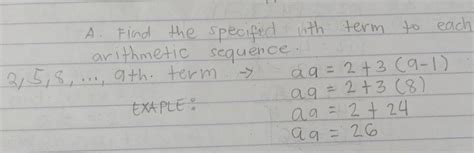 A. Find the specified nth term to each
arithmetic sequence.
2, 5, 8, ..., 9th. term → a9 = 2 + 3 (9-1)
a9 = 2 + 3 (8)
EXAPLE: a9 = 2 + 24
a9 = 26